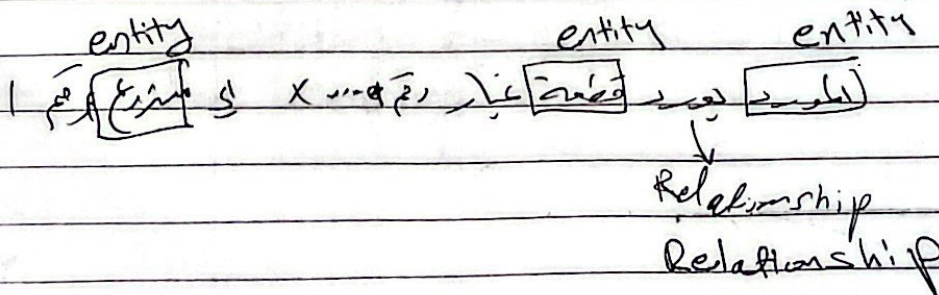 entity entity entity
المورد يورد قطعة غيار رقم x في مشروع رقم 1
Relationship
Relationship